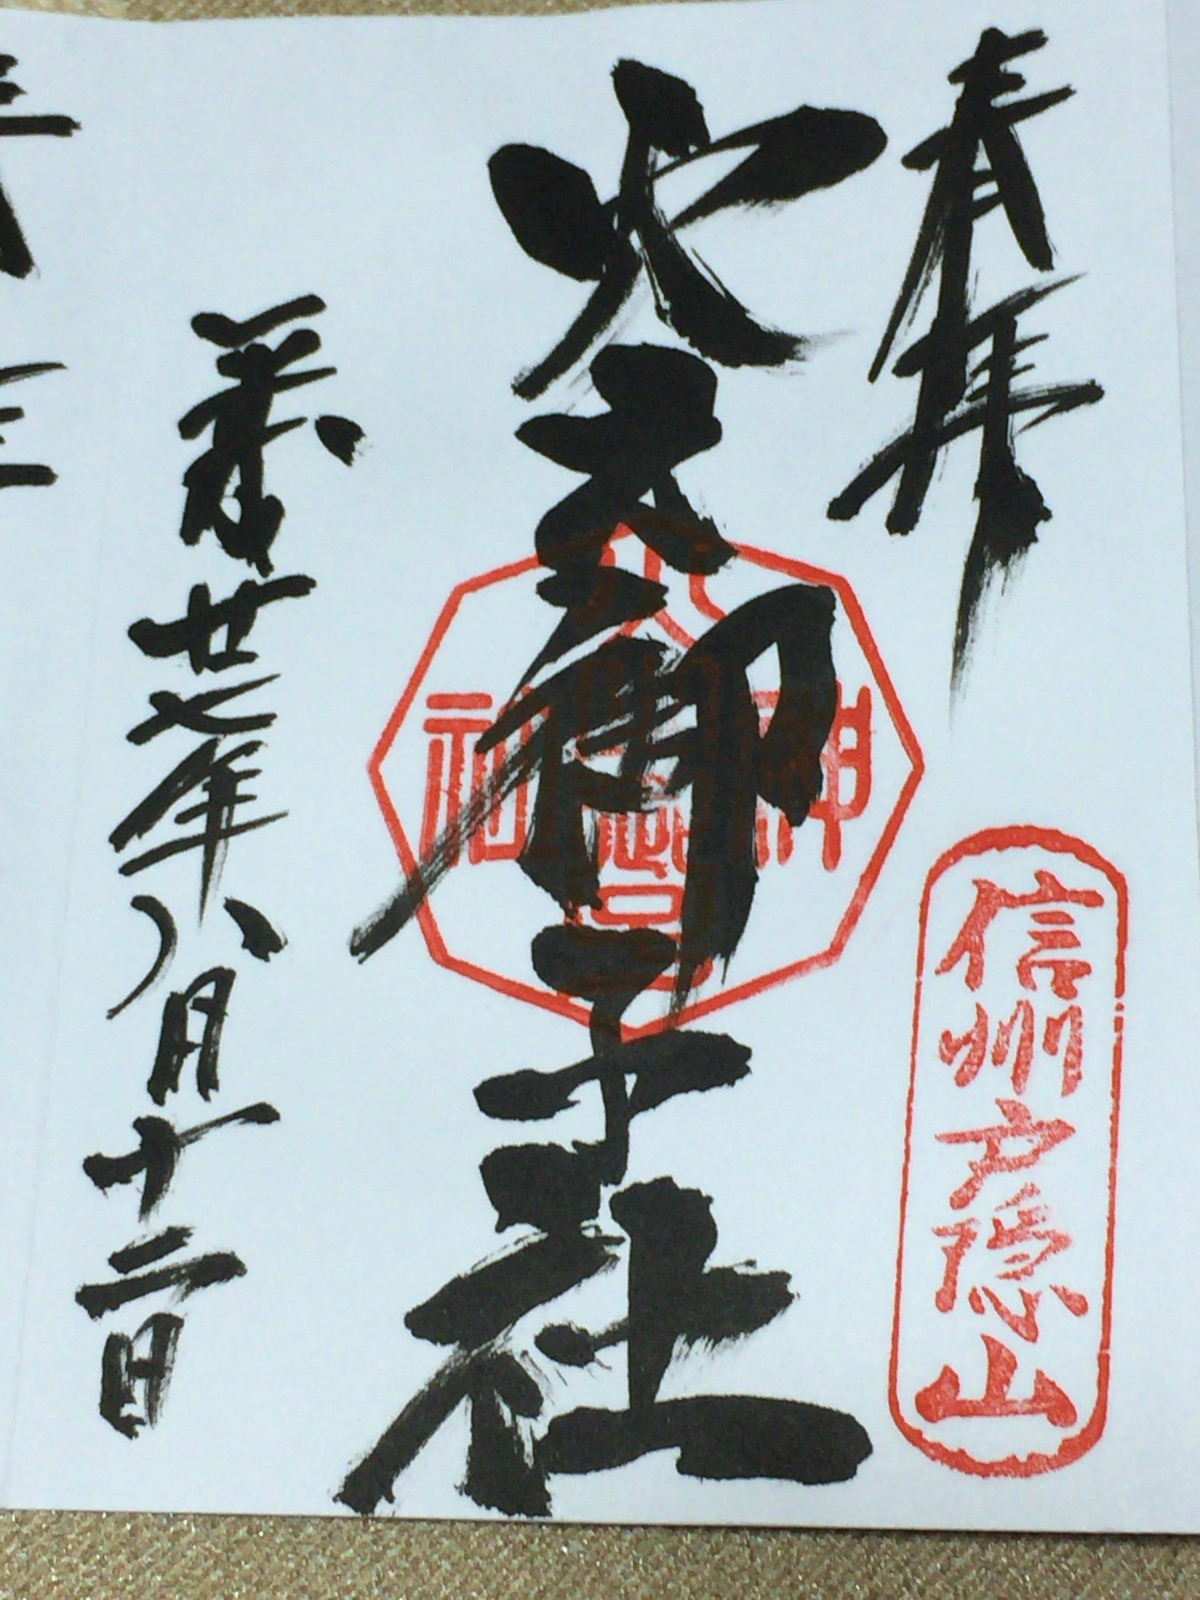 奉拝
信州戸隠山
火之御子社
平成廿七年八月十二日